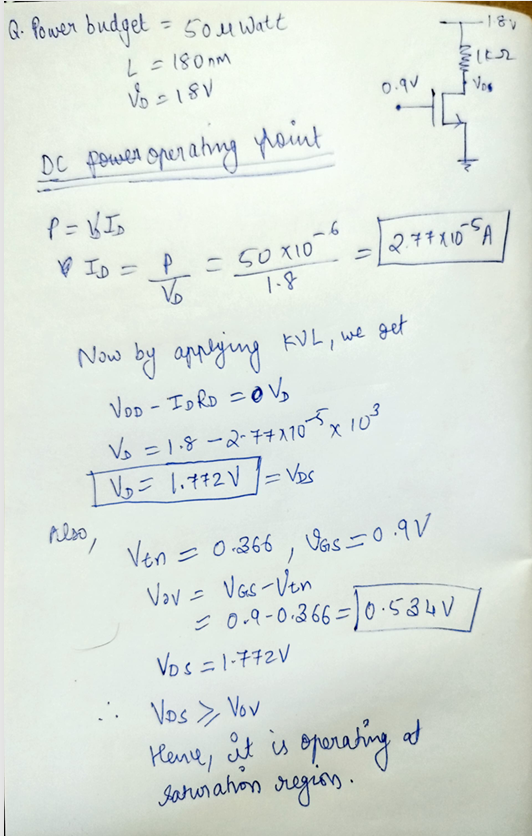 Q. Power budget = 50 μ Watt
L = 180 nm
VD = 1.8V
1.8V
1kΩ
VDS
0.9V
DC power operating point
P = VD ID
ID = P / VD = 50 × 10^-6 / 1.8 = 2.77 × 10^-5 A
Now by applying KVL, we get
VDD - ID RD = VD
VD = 1.8 - 2.77 × 10^-5 × 10^3
VD = 1.772 V = VDS
Also,
Vtn = 0.366 , VGS = 0.9V
Vov = VGS - Vtn
= 0.9 - 0.366 = 0.534 V
VDS = 1.772V
∴ VDS ≥ Vov
Hence, it is operating at
saturation region.